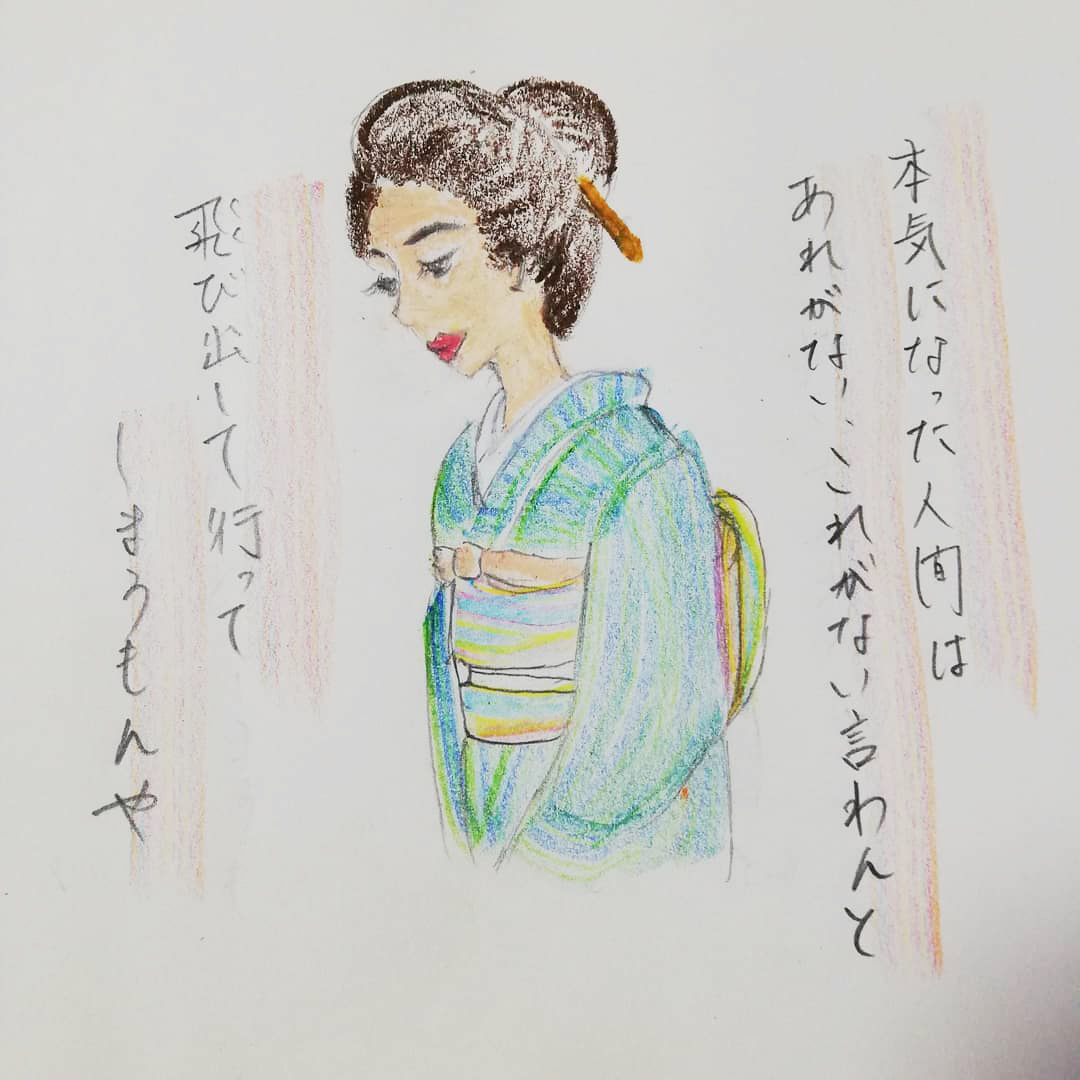 本気になった人間は
あれがない、これがない言わんと
飛び出して行って
しまうもんや